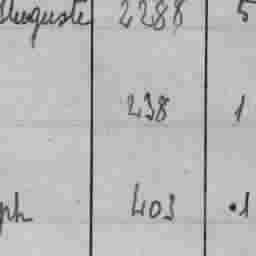 Auguste 2288 5
238 1
ph 403 .1